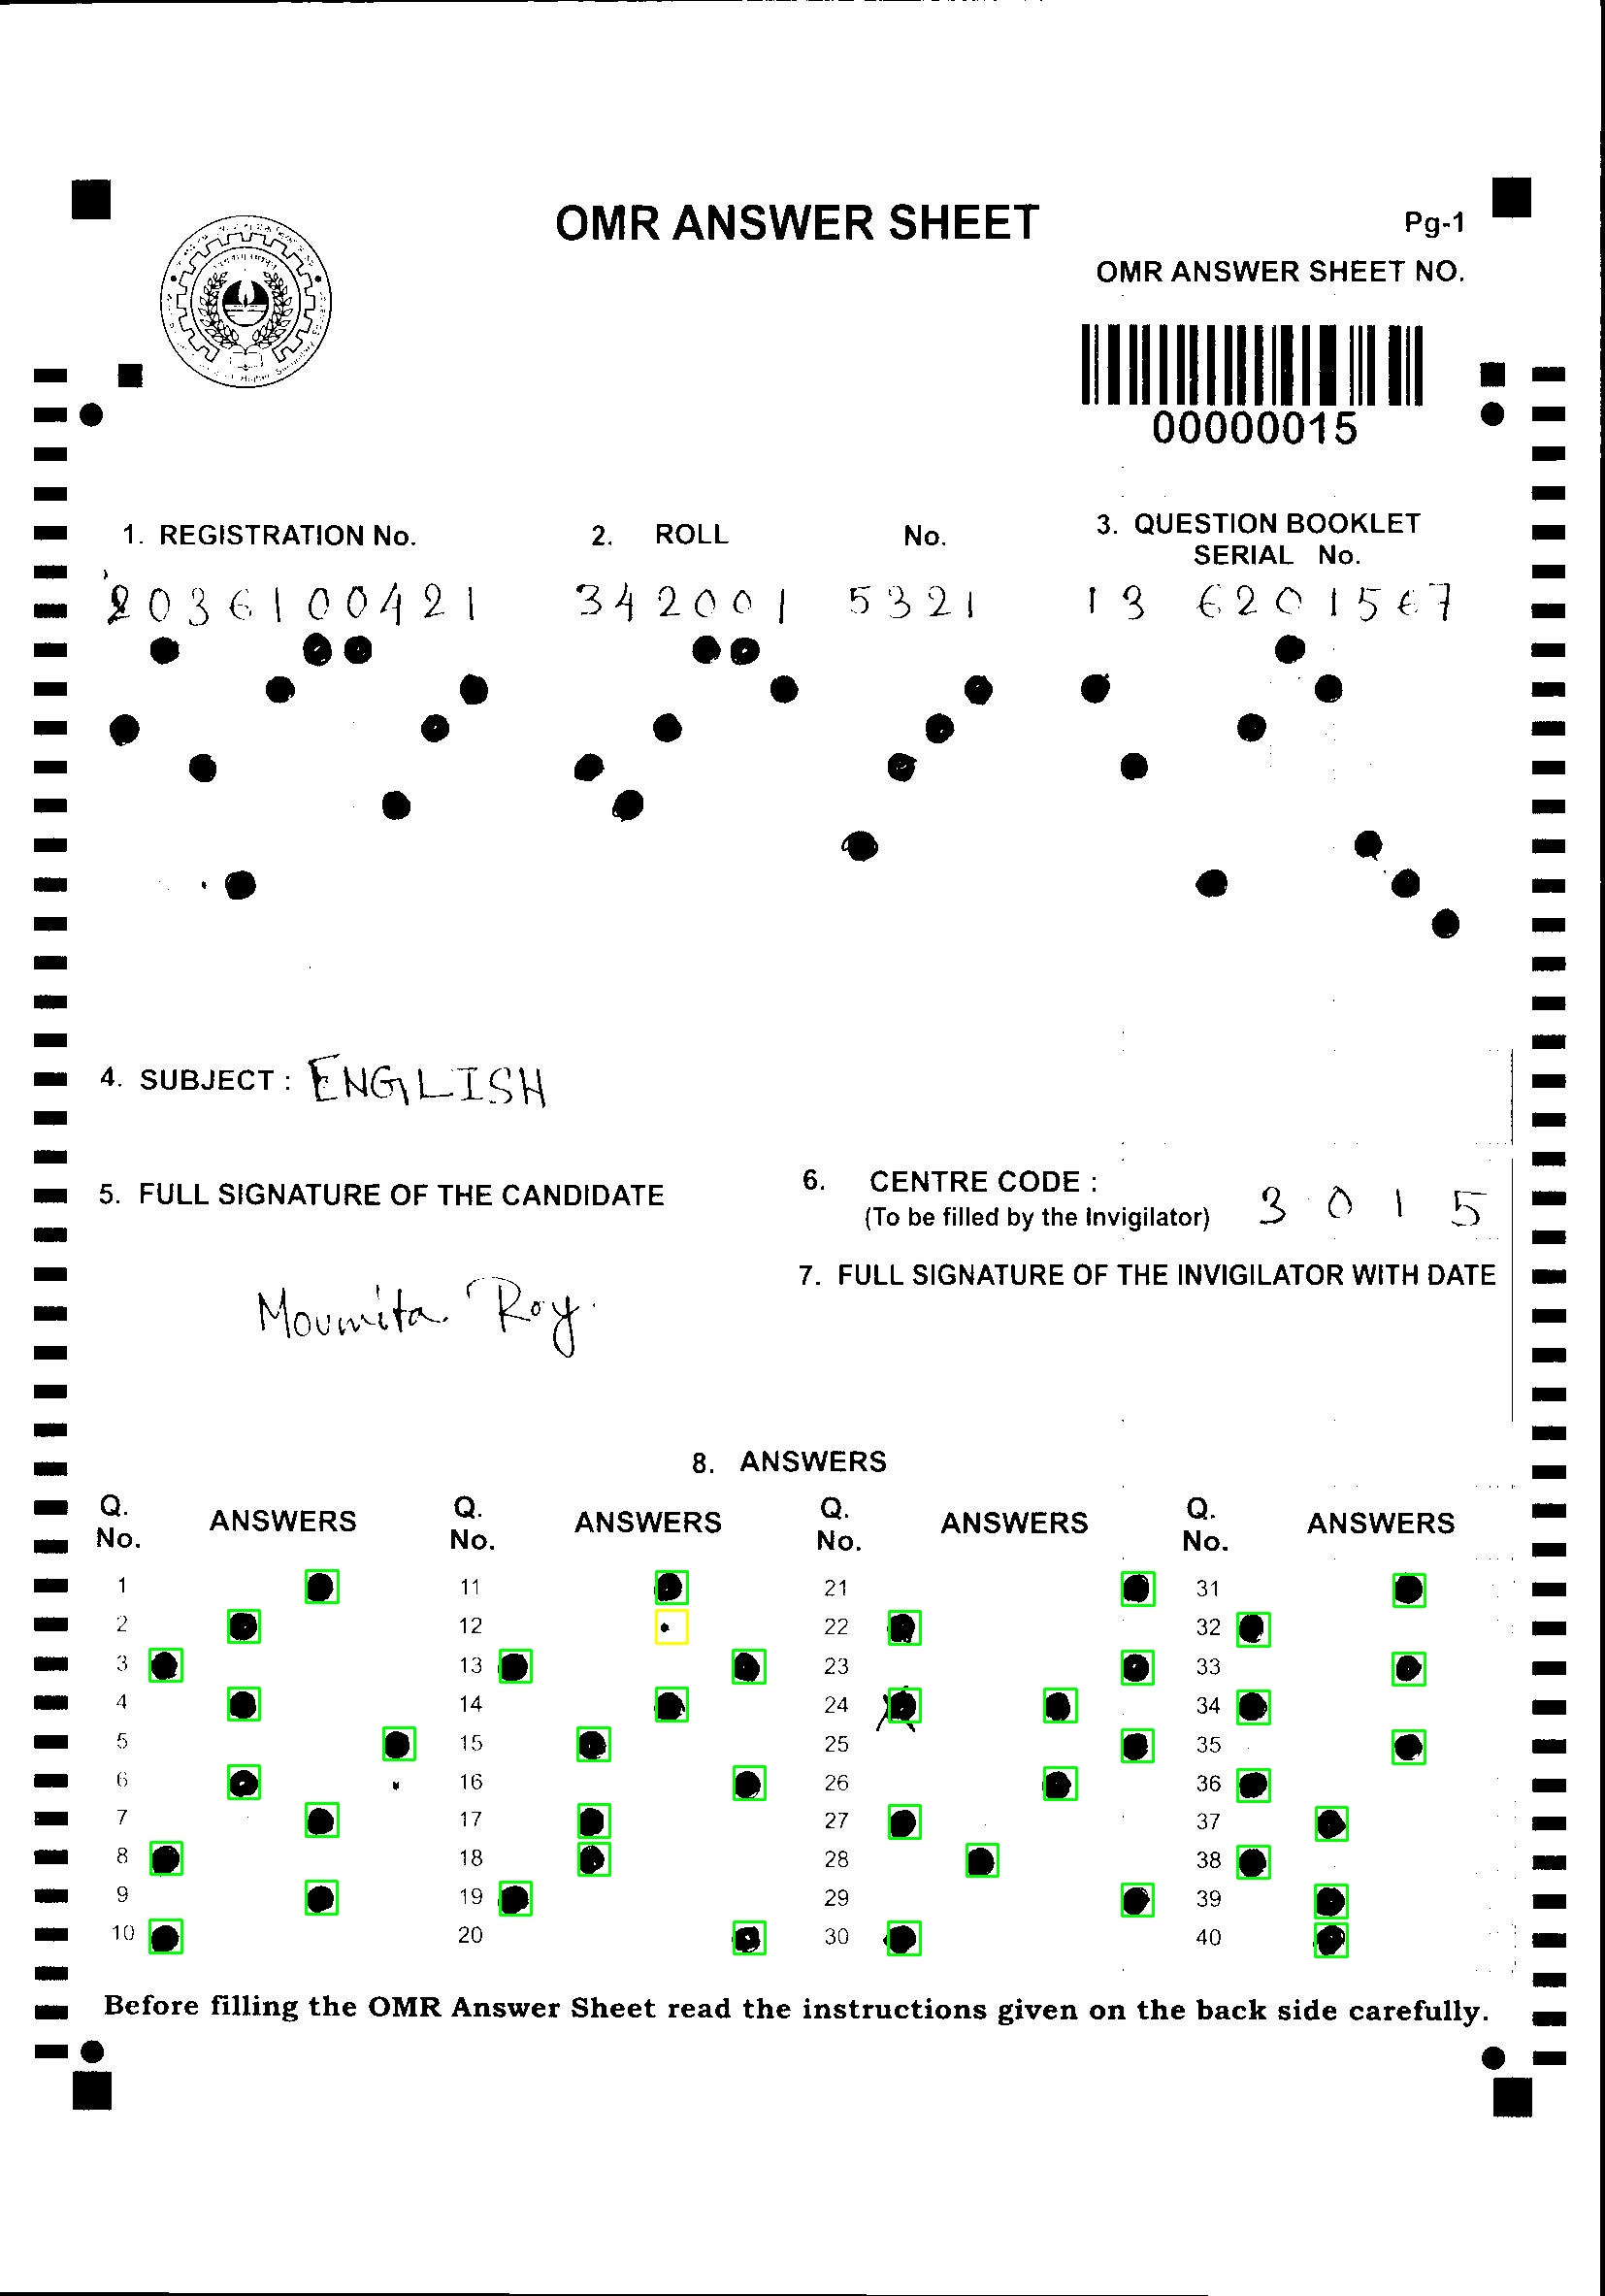 OMR ANSWER SHEET
Pg-1
OMR ANSWER SHEET NO.
00000015
1. REGISTRATION No. 2. ROLL No. 3. QUESTION BOOKLET SERIAL No.
2036100421 342001 5321 13 6201567
4. SUBJECT : ENGLISH
5. FULL SIGNATURE OF THE CANDIDATE
Moumita Roy.
6. CENTRE CODE : 3 0 1 5
(To be filled by the Invigilator)
7. FULL SIGNATURE OF THE INVIGILATOR WITH DATE
8. ANSWERS
Q. No. ANSWERS Q. No. ANSWERS Q. No. ANSWERS Q. No. ANSWERS
1 11 21 31
2 12 22 32
3 13 23 33
4 14 24 34
5 15 25 35
6 16 26 36
7 17 27 37
8 18 28 38
9 19 29 39
10 20 30 40
Before filling the OMR Answer Sheet read the instructions given on the back side carefully.